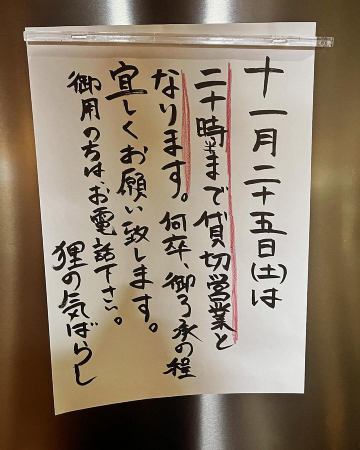 十一月二十五日(土)は
二十時まで貸切営業と
なります。何卒、御了承の程
宜しくお願い致します。
御用の方はお電話下さい。
狸の気ばらし